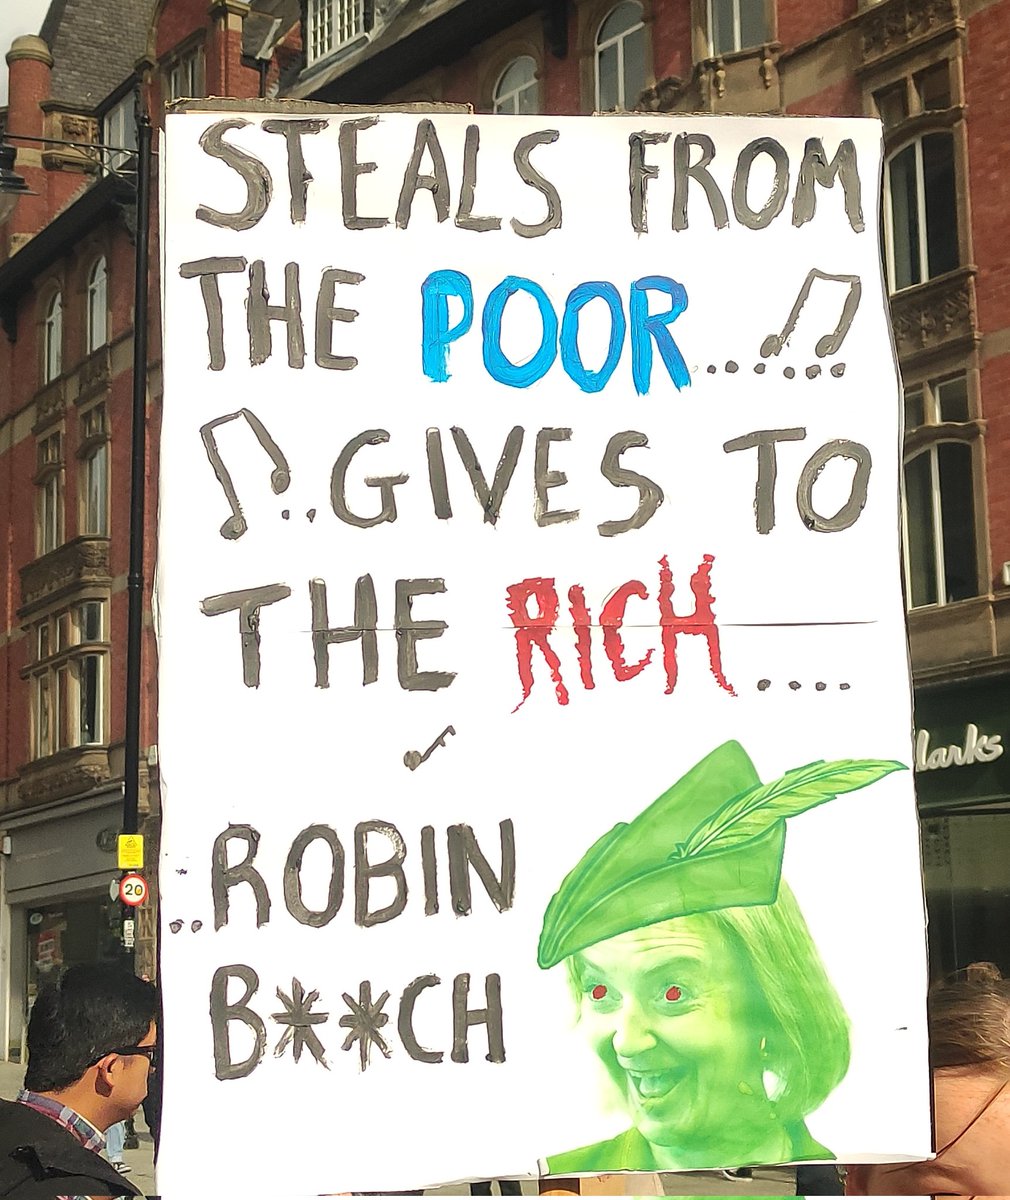 STEALS FROM
THE POOR.......
..GIVES TO
THE RICH....
..ROBIN
B**CH
larks
20